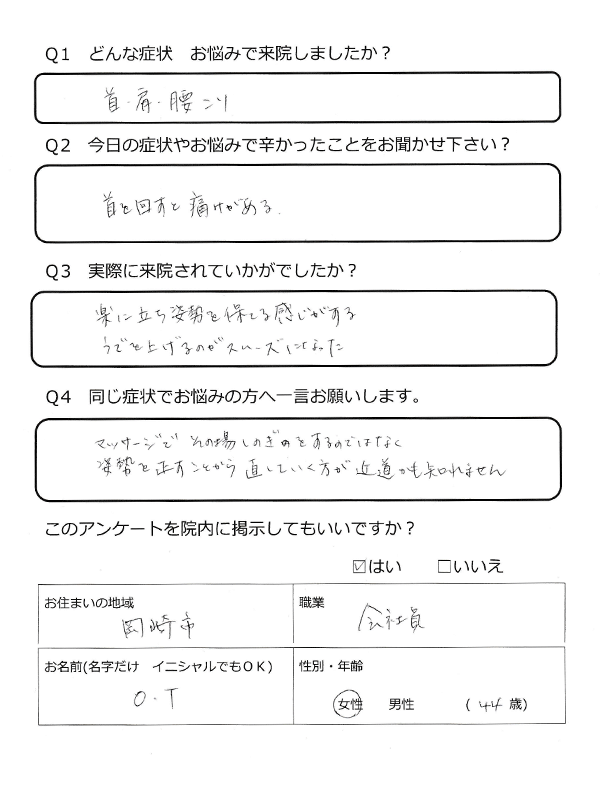 Q1 どんな症状 お悩みで来院しましたか？
首・肩・腰 こり
Q2 今日の症状やお悩みで辛かったことをお聞かせ下さい？
首を回すと痛けがある.
Q3 実際に来院されていかがでしたか？
楽に立ち姿勢を保てる感じがする
うでを上げるのがスムーズになった
Q4 同じ症状でお悩みの方へ一言お願いします。
マッサージで その場しのぎをするのではなく
姿勢を正すことから 直していく方が 近道かも知れません
このアンケートを院内に掲示してもいいですか？
☑はい □いいえ
お住まいの地域
岡崎市
職業
会社員
お名前(名字だけ イニシャルでもＯＫ)
O・T
性別・年齢
女性 男性 (44歳)